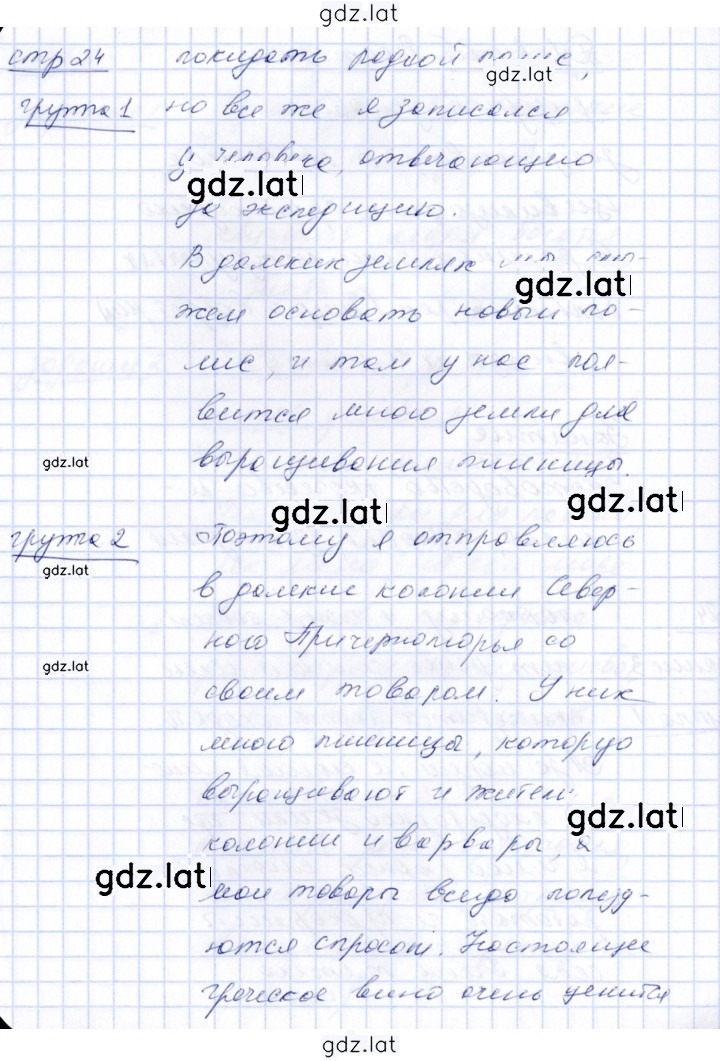 gdz.lat
стр 24 покидать родной
gdz.lat
группа 1 но все же я записался
у человека, отвечающего
gdz.lat
за экспедицию.
В далеких землях мы смо-
gdz.lat
жем основать новый по-
лис, и там у нас поя-
вится много земли для
gdz.lat
выращивания пшеницы.
gdz.lat
gdz.lat
группа 2 Поэтому я отправляюсь
gdz.lat
в далекие колонии Север-
ного Причерноморья со
gdz.lat
своим товаром. У них
много пшеницы, которую
выращивают и жители
gdz.lat
колонии и варвары, а
gdz.lat
мои товары всегда пользу-
ются спросом. Настоящее
греческое вино очень ценится
gdz.lat